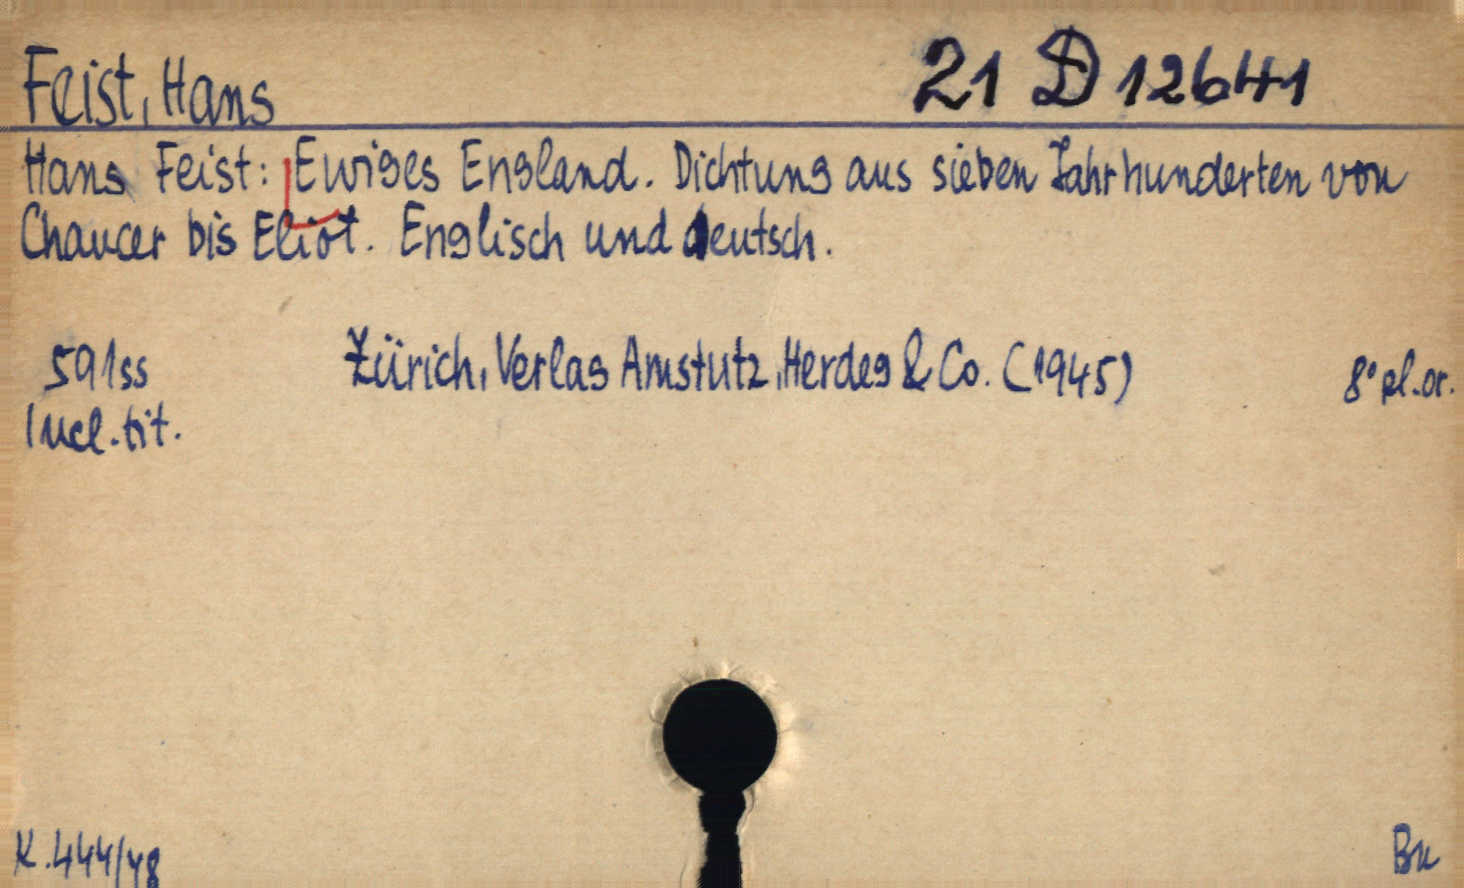 Feist, Hans 21 D 12641
Hans Feist: Ewiges England. Dichtung aus sieben Jahrhunderten von
Chaucer bis Eliot. Englisch und deutsch.
591ss Zürich, Verlag Amstutz, Herdeg & Co. (1945) 8° pl.or.
Incl.tit.
K.444/48 Bu